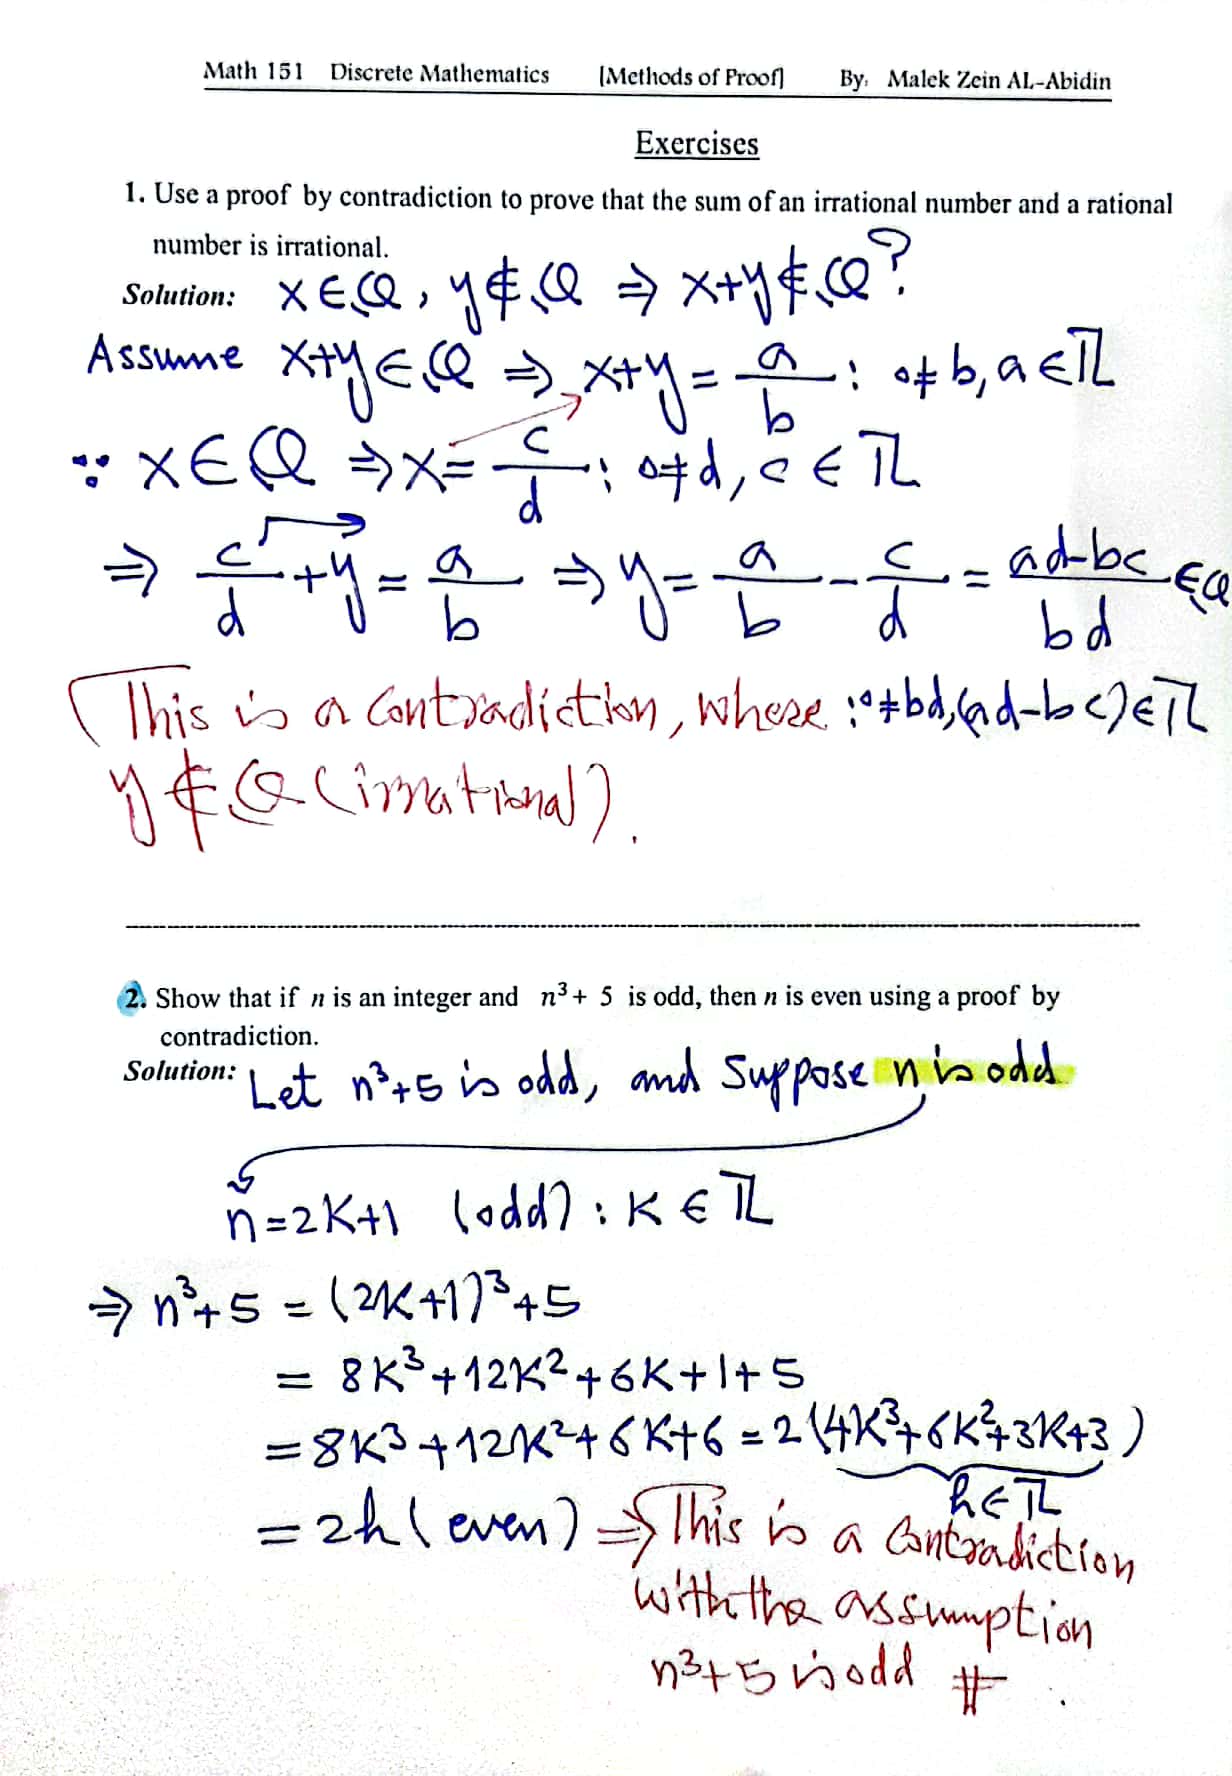 Math 151 Discrete Mathematics [Methods of Proof] By: Malek Zein AL-Abidin
Exercises
1. Use a proof by contradiction to prove that the sum of an irrational number and a rational
number is irrational.
Solution: x∈Q, y∉Q ⇒ x+y∉Q?
Assume x+y∈Q ⇒ x+y = a/b ; 0≠b, a∈ℤ
∵ x∈Q ⇒ x = c/d ; 0≠d, c∈ℤ
⇒ c/d + y = a/b ⇒ y = a/b - c/d = ad-bc/bd ∈Q
This is a Contradiction, where ; 0≠bd, (ad-bc)∈ℤ
y∉Q (irrational).
2. Show that if n is an integer and n³+ 5 is odd, then n is even using a proof by
contradiction.
Solution: Let n³+5 is odd, and Suppose n is odd
n=2K+1 (odd) ; K∈ℤ
⇒ n³+5 = (2K+1)³+5
= 8K³+12K²+6K+1+5
=8K³+12K²+6K+6 = 2(4K³+6K²+3K+3)
h∈ℤ
= 2h (even) ⇒ This is a Contradiction
with the assumption
n³+5 is odd #.